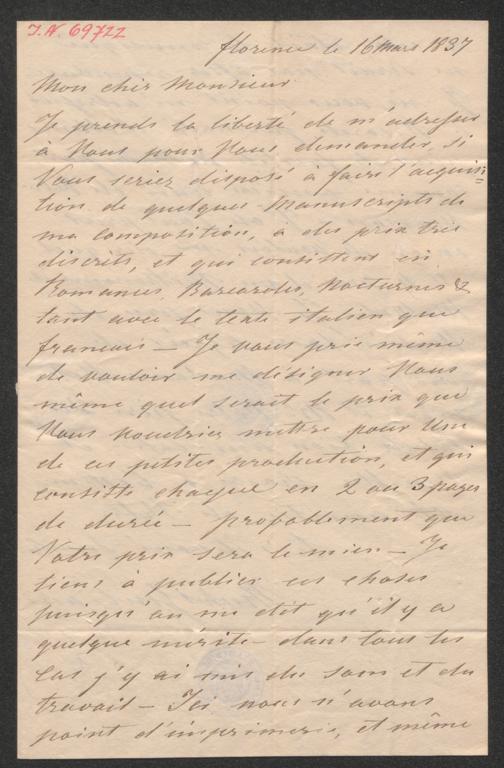 I.N. 69722
florence le 16 mars 1837
Mon cher Monsieur
Je prends la liberté de m'adresser
à Vous pour Vous demander, si
Vous seriez disposé à faire l'acquisi=
tion de quelques Manuscripts de
ma composition, à des prix très
discrets, et qui consistent en
Romances, Barcaroles, Nocturnes &
tant avec le texte italien que
francais — Je vous prie même
de vouloir me désigner Vous
même quel serait le prix que
Vous voudriez mettre pour Une
de ces petites production, et qui
consiste chaque en 2 ou 3 pages
de durée — propablement que
Votre prix sera le mien — Je
tiens à publier ces choses
puisqu'on me dit qu'il y a
quelque mérite — dans tout les
cas j'y ai mis du soin et du
travail — Ici nous n'avons
point d'imprimerie, et même